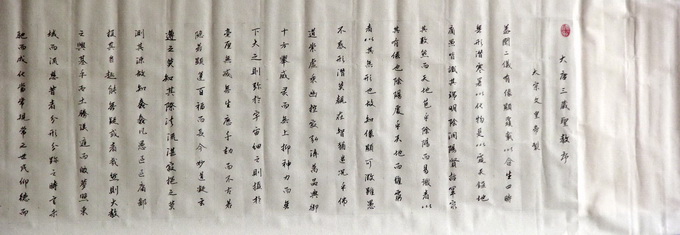 大唐三藏聖教序
太宗文皇帝製
蓋聞二儀有像顯覆載以含生四時
無形潛寒暑以化物是以窺天鑑地
庸愚皆識其端明陰洞陽賢哲罕窮
其數然而天地苞乎陰陽而易識者以
其有像也陰陽處乎天地而難窮
者以其無形也故知像顯可徵雖愚
不惑形潛莫覩在智猶迷況乎佛
道崇虛乘幽控寂弘濟萬品典御
十方舉威靈而無上抑神力而無
下大之則彌於宇宙細之則攝於
毫釐無滅無生歷千劫而不古若
隱若顯運百福而長今妙道凝玄
遵之莫知其際法流湛寂挹之莫
測其源故知蠢蠢凡愚區區庸鄙
投其旨趣能無疑或者哉然則大教
之興基乎西土騰漢庭而皎夢照東
域而流慈昔者分形分跡之時言未
馳而成化當常現常之世民仰德而